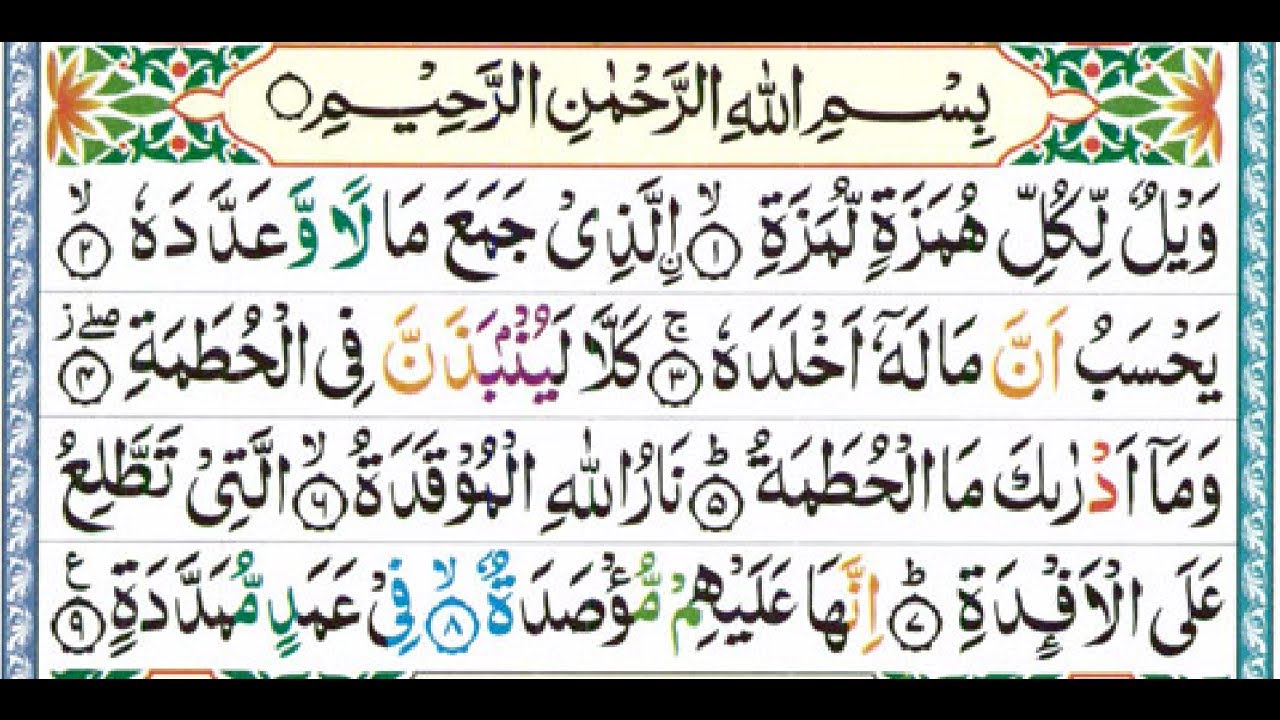 بِسْمِ اللهِ الرَّحْمٰنِ الرَّحِيْمِ ۝
وَيْلٌ لِّكُلِّ هُمَزَةٍ لُّمَزَةِ ۙ﴿۱﴾ اِ۟لَّذِىْ جَمَعَ مَالًا وَّ عَدَّدَهٗ ۙ﴿۲﴾
يَحْسَبُ اَنَّ مَالَهٗۤ اَخْلَدَهٗ ۚ﴿۳﴾ كَلَّا لَيُنْۢبَذَنَّ فِى الْحُطَمَةِ ۖ ز﴿۴﴾
وَمَاۤ اَدْرٰىكَ مَا الْحُطَمَةُ ؕ﴿۵﴾ نَارُ اللهِ الْمُوْقَدَةُ ۙ﴿۶﴾ الَّتِىْ تَطَّلِعُ
عَلَى الْاَفْئِدَةِ ؕ﴿۷﴾ اِنَّهَا عَلَيْهِمْ مُّؤْصَدَةٌ ۙ﴿۸﴾ فِىْ عَمَدٍ مُّمَدَّدَةٍ ع﴿۹﴾